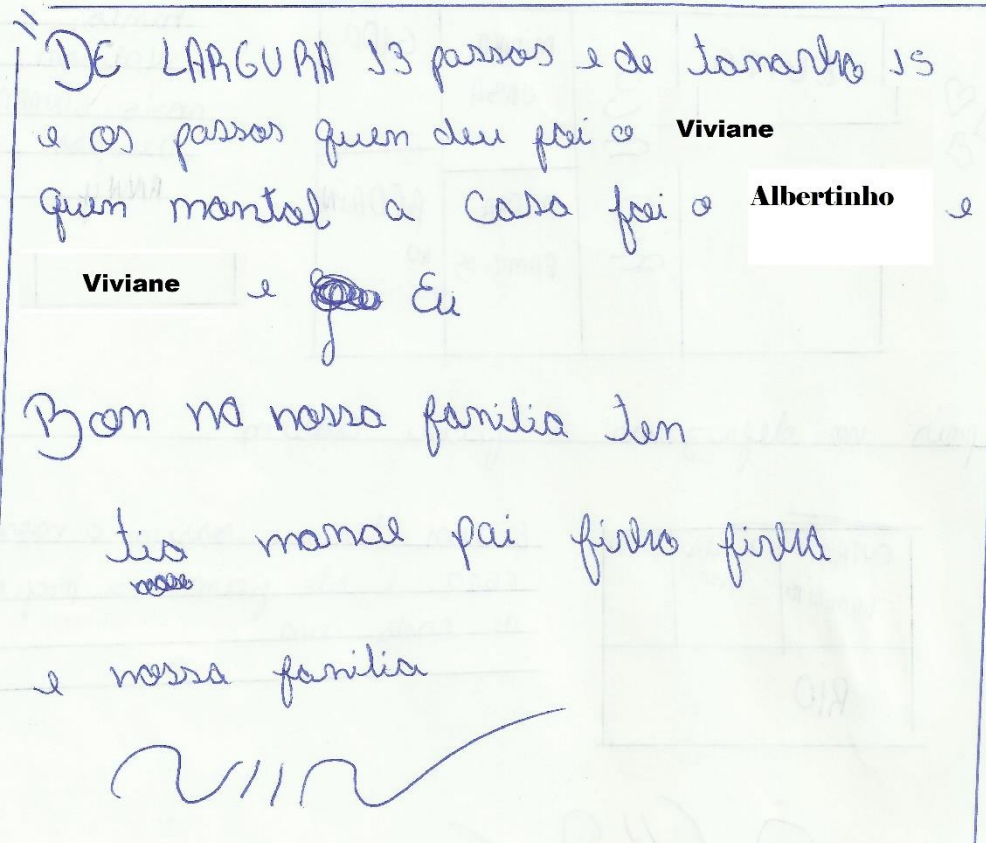 DE LARGURA 13 passos e de tamanho 15
e os passos quen deu foi o Viviane
quen montol a casa foi o Albertinho e
Viviane e Eu
Bon na nossa familia ten
tia manae pai finho finha
e nossa familia